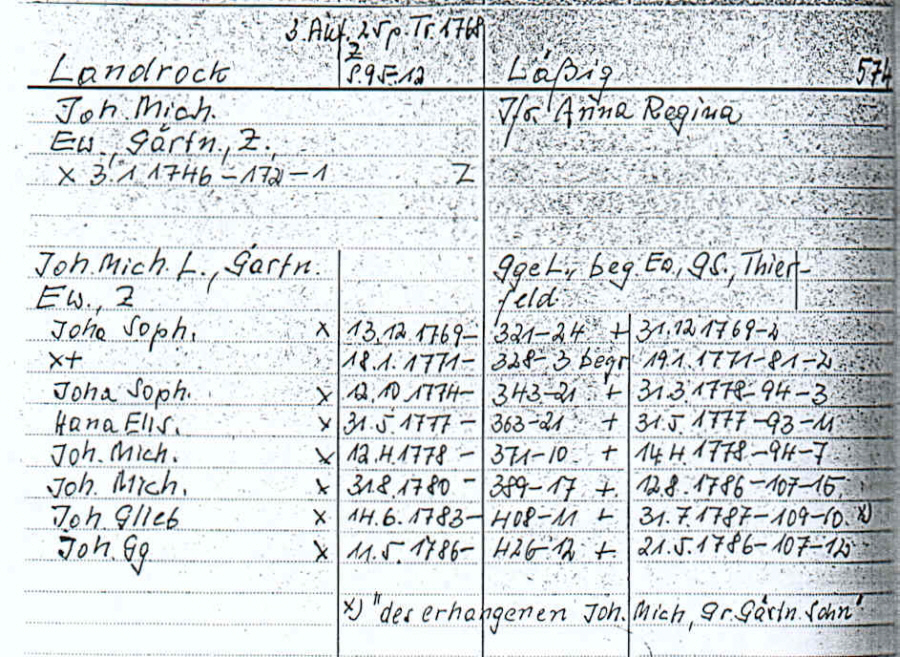 3. Auf. 25 p. Tr. 1768
Z
Landrock S. 95-12 Läßig 574
Joh. Mich. Jfr. Anna Regina
Ew., Gärtn., Z.
x 3.1.1746-172-1 Z
Joh. Mich. L., Gärtn. Gge L., beg. Ew, GS., Thier-
Ew., Z feld.
Joha Soph. x 13.12.1769- 321-24 + 31.12.1769-2
x+ 18.1.1771- 328-3 begr 19.1.1771-81-2
Joha Soph. x 12.10.1774- 343-21 + 31.3.1778-94-3
Hana Elis. x 31.5.1777- 363-21 + 31.5.1777-93-11
Joh. Mich. x 12.4.1778- 371-10. + 14.4.1778-94-7
Joh. Mich. x 31.8.1780- 389-17 + 12.8.1786-107-15
Joh. Glieb x 14.6.1783- 408-11 + 31.7.1787-109-10. x)
Joh. Gg x 11.5.1786- 426-12 + 21.5.1786-107-12
x) "des erhangenen Joh. Mich, Gr. Gärtn. Sohn"